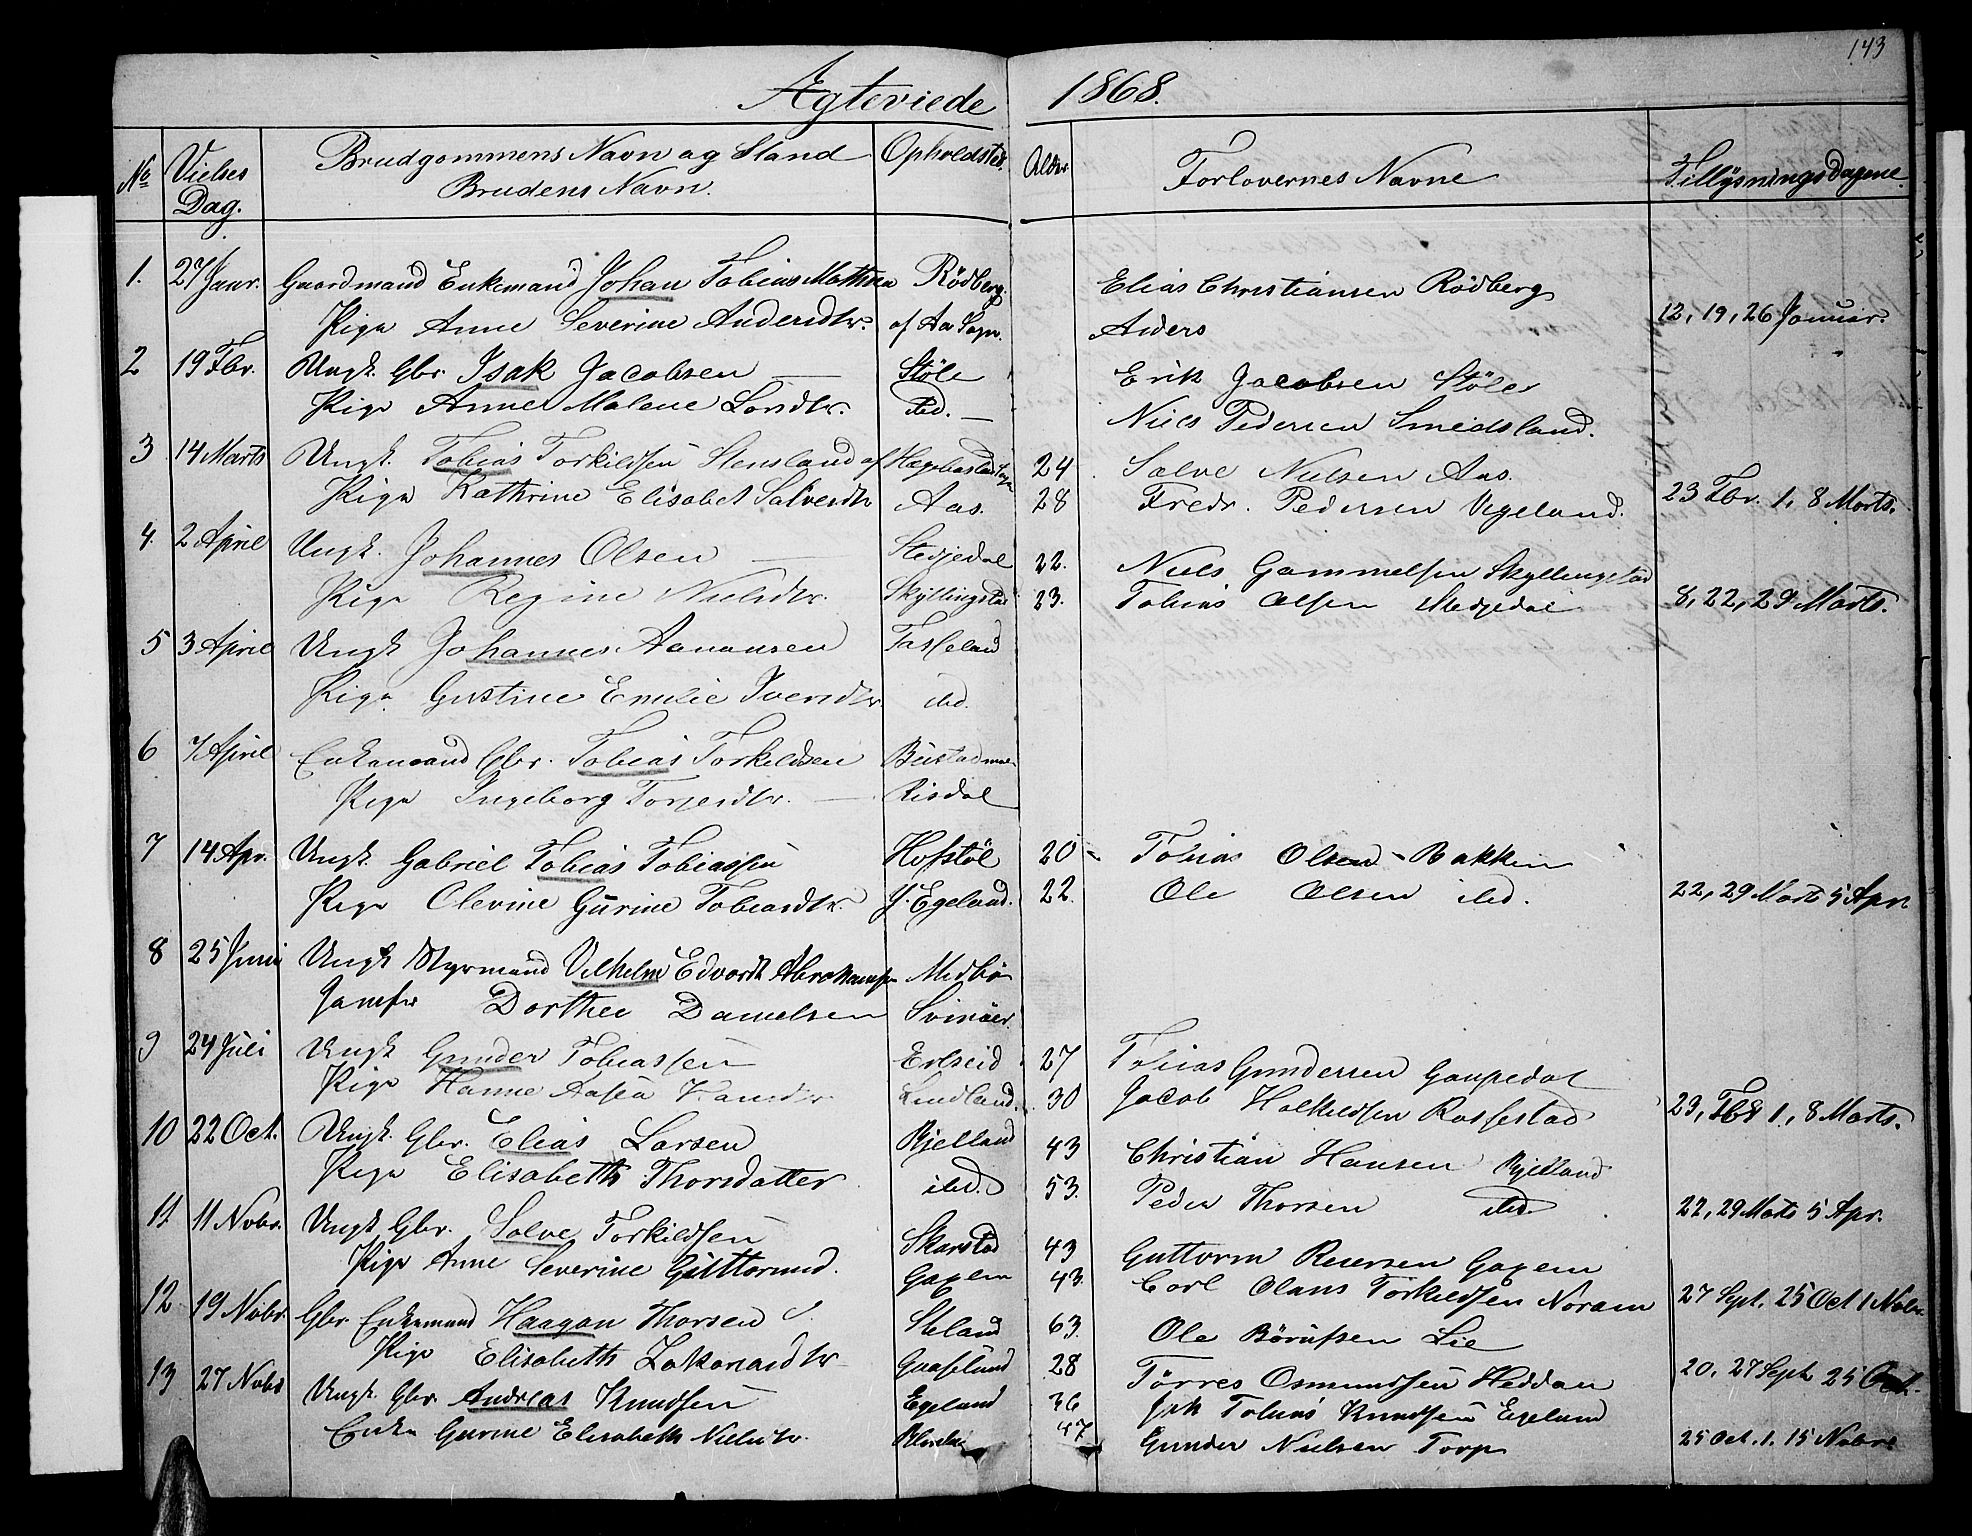 143
Ægteviede 1868.
No Vielses Dag. Brudgommens Navn og Stand Brudens Navn. Opholdsted. Alder Forlovernes Navne Tillysningsdagene
1. 27 Janr. Gaardmand Enkemand Johan Tobias Mathsen Rödberg. Elias Christiansen Rödberg
Pige Anne Severine Andersdtr. af Aa Sogn. Anders 12, 19, 26 Januar.
2 19 Fbr. Ungk. Gbr. Isak Jacobsen — Støle Erik Jacobsen Støle
Pige Anne Malene Larsdtr. ibd. — Niels Pedersen Smedsland.
3 14 Marts Ungk. Tobias Torkildsen Stensland af Hægebostad Sogn 24 Salve Nielsen Aas.
Pige Kathrine Elisabet Salvesdtr Aas. 28 Fredr. Pedersen Vegeland. 23 Fbr. 1, 8 Marts.
4. 2 April Ungk. Johannes Olsen — Stedjedal 22. Niels Gammelsen Skyllingstad
Pige Regine Nielsdtr. Skyllingstad 23. Tobias Olsen Stedjedal 8, 22, 29 Marts.
5 3 April Ungk Johannes Aanonsen Fasseland
Pige Gustine Emilie Iversdtr ibd.
6 7 April Enkemand Gbr. Tobias Torkildsen
Pige Ingeborg Torjersdtr. — Risdal
7 14 Apr. Ungk. Gabriel Tobias Tobiassen Hofstøl 20 - Tobias Olsen - Bakken
Pige Olevine Gurine Tobiasdtr. Y. Egeland. 22. Ole Olsen ibd. 22, 29 Marts 5 Apr.
8 25 Juni Ungk Styrmand Vilhelm Edvardt Abrahamsen Medbø
Jomfr Dorthee Danielsen Svinøer.
9 24 Juli Ungk Gunder Tobiassen Erkseid 27 Tobias Gundersen Gaupedal
Pige Hanne Aasea Hansdtr. Lindland. 30 Jacob Holkildsen Rossestad 23, Fbr 1, 8 Marts.
10 22 Oct. Ungk. Gbr. Elias Larsen Bjelland 43 Christian Hansen Bjelland
Pige Elisabeth Thorsdatter ibd. 53. Peder Thorsen ibd. 22, 29 Marts 5 Apr.
11 11 Nobr. Ungk Gbr. Salve Torkildsen Skarstad 43 Guttorm Reiersen
Pige Anne Severine Guttormsd. 43. Carl Olaus Torkildsen Noraen 27 Spt. 25 Oct 1 Nobr
12 19 Nobr. Gbr. Enkemand Haagon Thorsen Steland 63. Ole Börufsen Lie
Pige Elisabeth Zakariasdtr 28 Tørres Osmundsen Heddan 20, 27 Sept. 25 Oct.
13 27 Nobr Ungk. Gbr. Andreas Knudsen Egeland 36 Tobias Knudsen Egeland
Enke Gurine Elisabeth Nielsdtr. 47 Gunder Nielsen Torp 25 Oct. 1. 15 Nobr